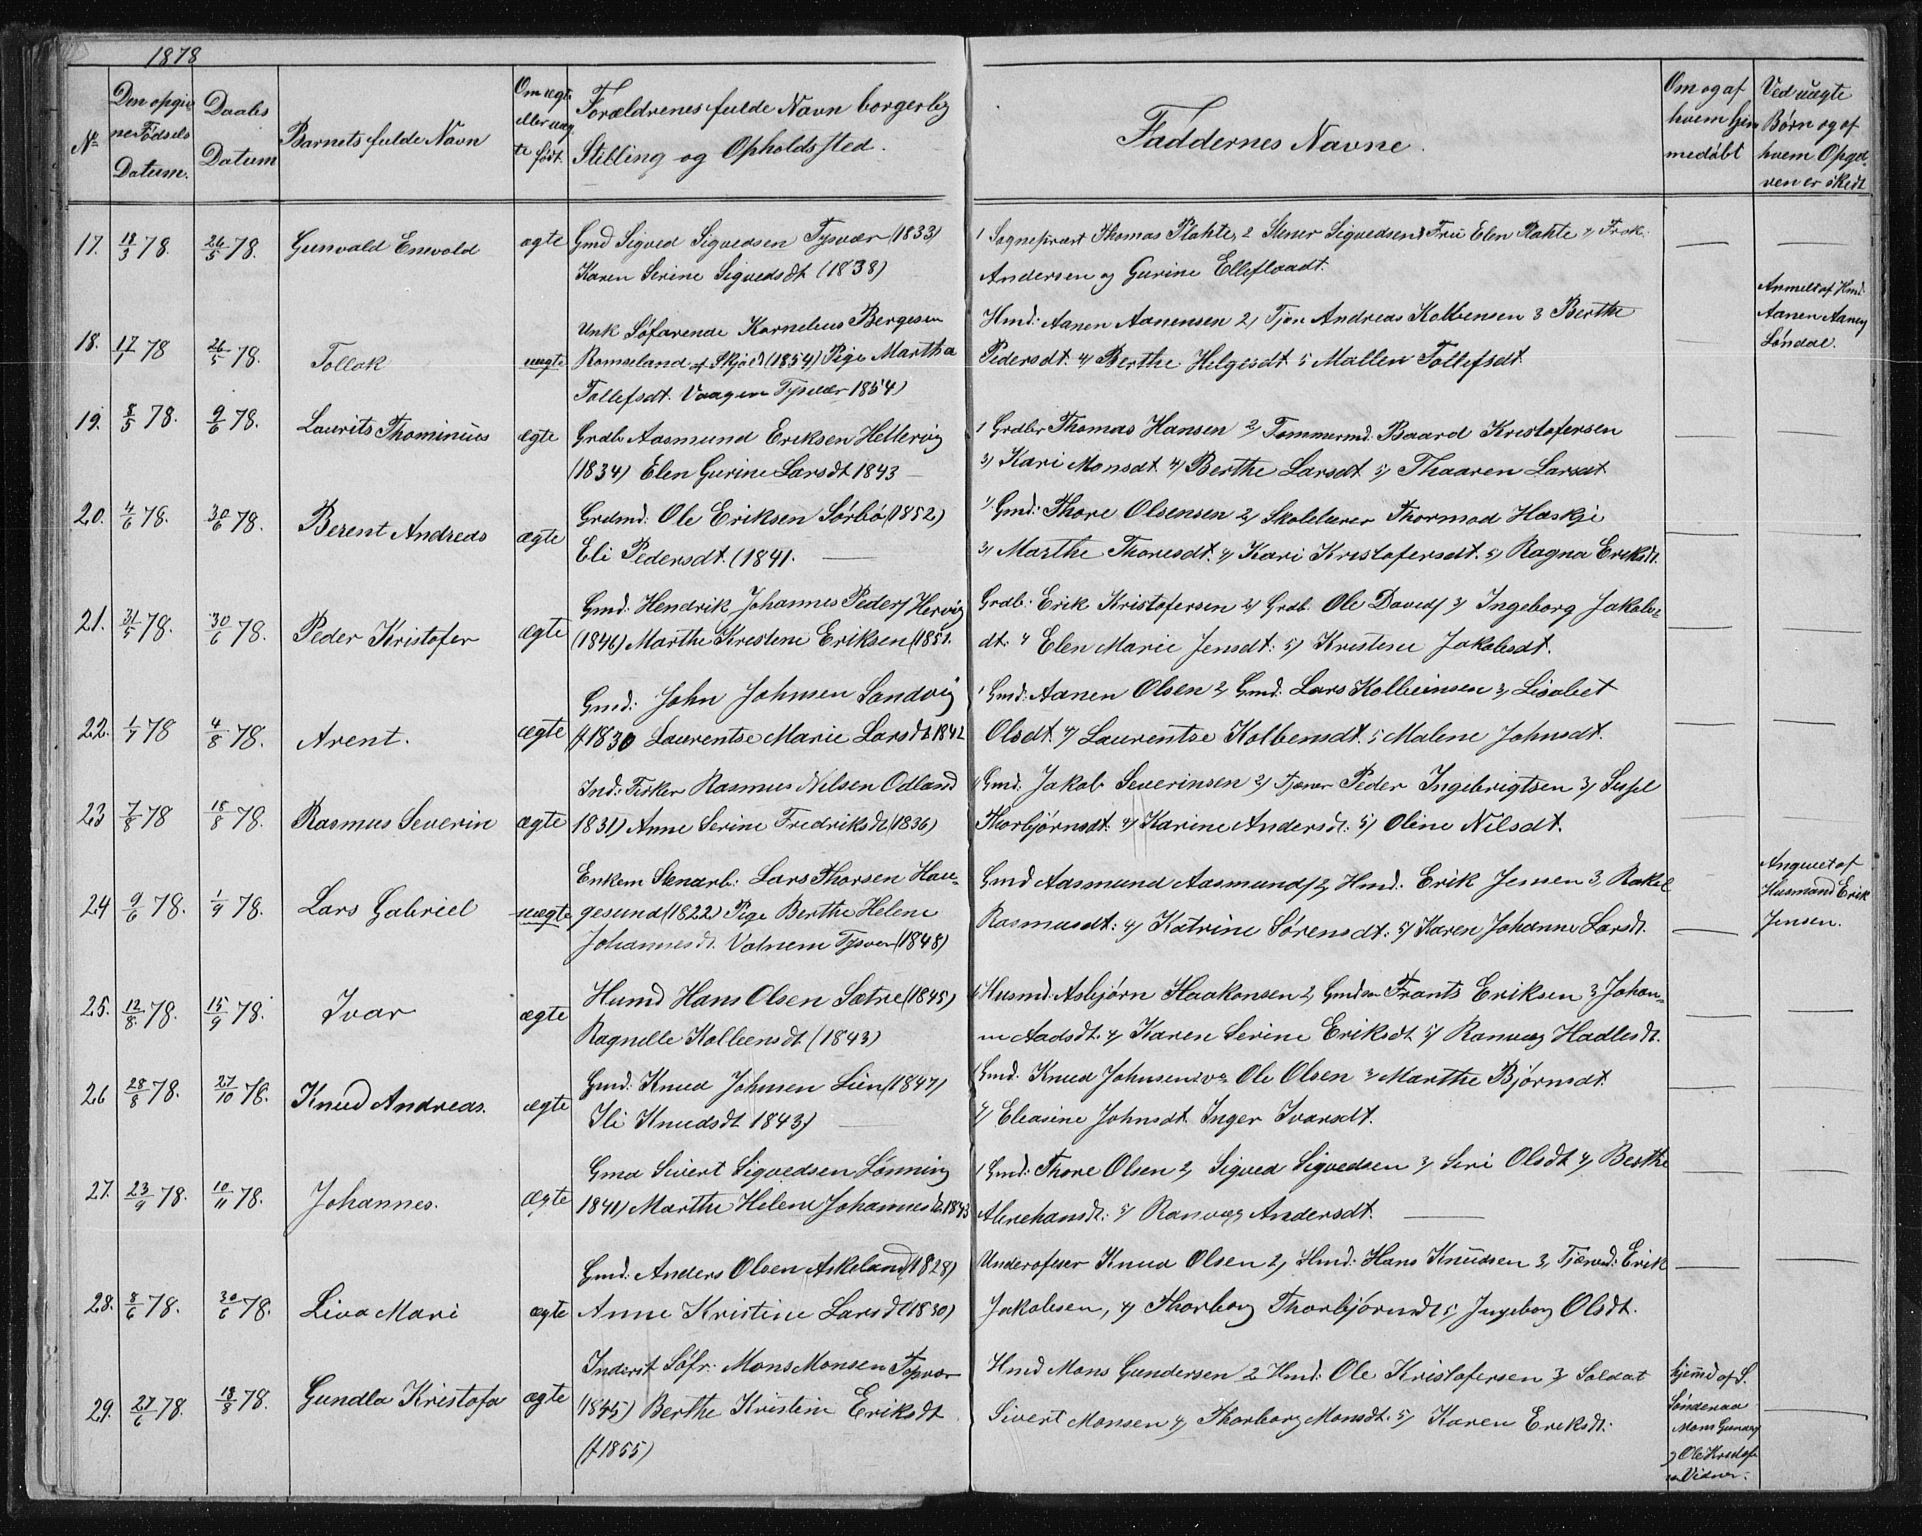 1878
№
Den opgivne Fødsels Datum.
Daabs Datum
Barnets fulde Navn
Om ægte eller uægte født.
Forældrenes fulde Navn borgerlig Stilling og Opholdssted.
Faddernes Navne.
Om og af hvem hjemmedøbt
Ved uægte Børn og af hvem Opgaven er skedt
17. 18/3 78. 26/5 78. Gunvald Enevold ægte Gmd Sigved Sigvedsen Tysvær (1833)
Karen Serine Sigvedsdt (1838)
1 Sognepræst Thomas Plahte, 2 Stener Sigvedsen 3 Fru Elen Plahte 4 Frøk.
Andersen og Gurine Ellefsaadt.
18. 17/1 78 26/5 78. Tollak uægte Unk Søfarende Kornelius Bergesen
Romseland af Skjold (1854) Pige Martha
Tollefsdt. Vaagen Tysvær 1854)
Hmd: Aanen Aanensen 2, Tjen Andreas Kolbensen 3 Berthe
Pedersdt 4) Berthe Helgesdt 5 Mallen Tollefsdt.
Anmelt af Hmd.
Aanen Aanen
Søndal.
19. 8/5 78. 9/6 78. Laurits Thominius ægte Grdb Aasmund Eriksen Hettervig
(1834) Elen Gurine Larsdt 1843
1 Grdbr Thomas Hansen 2) Tømmermd. Baard Kristofersen
3) Kari Monsdt 4) Berthe Larsdt 5) Thaaren Larsdt
20. 4/6 78. 30/6 78. Berent Andreas ægte Grdmd: Ole Eriksen Sørbø (1852)
Eli Pedersdt. (1841.
1) Gmd: Thore Olsensen 2) Skolelærer Thormod Haskje
3) Marthe Thoresdt. 4) Kari Kristofersdt. 5) Ragna Eriksdt.
21. 31/5 78. 30/6 78. Peder Kristofer ægte Gmd. Hendrik Johannes Peders Hervig
(1846) Marthe Krestene Eriksen (1851.
Grdb: Erik Kristofersen 2) Grdb. Ole Davids 3) Ingeborg Jakobs-
dt. 4 Elen Marie Jensdt: 5) Kristene Jakobsdt.
22. 1/7 78 4/8 78. Arent. ægte Gmd: John Johnsen Sandvig
f 1830 Laurentse Marie Larsdt 1842
1 Gmd: Aanen Olsen 2 Gmd. Lars Kolbeinsen 3, Lisabet
Olsdt. 4) Laurentse Kolbensdt. 5 Malene Johnsdt.
23 7/8 78 18/8 78. Rasmus Severin ægte Ind: Fisker Rasmus Nilsen Odland
1831) Anne Serine Fredriksdt (1836)
1) Gmd. Jakob Severinsen 2) Tjener Peder Ingebrigtsen 3) Sissel
Thorbjørnsdt 4) Karine Andersdt. 5) Oline Nilsdt.
24 9/6 78. 1/9 78. Lars Gabriel uægte Enkem Stenarb: Lars Thorsen Hau-
gesund (1822) Pige Berthe Helene
Johannesdt. Valnem Tysvær (1848)
Gmd Aasmund Aasmunds 2, Hmd. Erik Jensen 3, Rakel
Rasmusdt: 4) Katrine Sørensdt: 5) Karen Johanne Larsdt.
Angivet af
Husmand Erik
Jensen.
25. 12/8 78. 15/9 78. Ivar ægte Husmd Hans Olsen Sætre (1845)
Ragnelle Kolbensdt (1843)
1 Husmd. Asbjørn Haakonsen 2, Gmdsøn Frants Eriksen 3 Johan-
ne Aadsdt. 4) Karen Serine Eriksdt 5) Ranveg Hadlesdt.
26 28/8 78. 27/10 78. Knud Andreas. ægte Gmd. Knud Johnsen Lien (1847)
Ili Knudsdt 1843)
1 Gmd. Knud Johnsen Ole Olsen 3 Marthe Bjørnsdt.
4) Eleasine Johnsdt. Inger Ivarsdt.
27. 23/9 78. 10/11 78. Johannes. ægte Gmd Sivert Sigvedsen Lønning
1841) Marthe Helene Johannesdt. 1843
1 Gmd: Thore Olsen 2, Sigved Sigvedsen 3) Seri Olsdt 4) Berthe
5) Ranveg Andersdt.
28. 8/6 78. 30/6 78. Liva Mari ægte Gmd: Anders Olsen Askeland (1828)
Anne Kristine Larsdt (1830)
Underofeser Knud Olsen 2, Hmd: Hans Knudsen 3, Tjened: Erik
Jakobsen, 4) Thorborg Thorbjørnsdt 5, Ingeborg Olsdt.
29. 27/6 78. 18/8 78. Gundla Kristofa ægte Inderst Søfr: Mons Monsen Tysvær
1845) Berthe Kristine Eriksdt
(f 1855)
Hmd Mons Gundersen 2 Hmd: Ole Kristofersen 3) Soldat
Sivert Monsen 4) Thorborg Monsdt. 5) Karen Eriksdt.
hjemmd af S.
Sønderaa
Mons Gunders
og Ole Kristof-
Vidner.